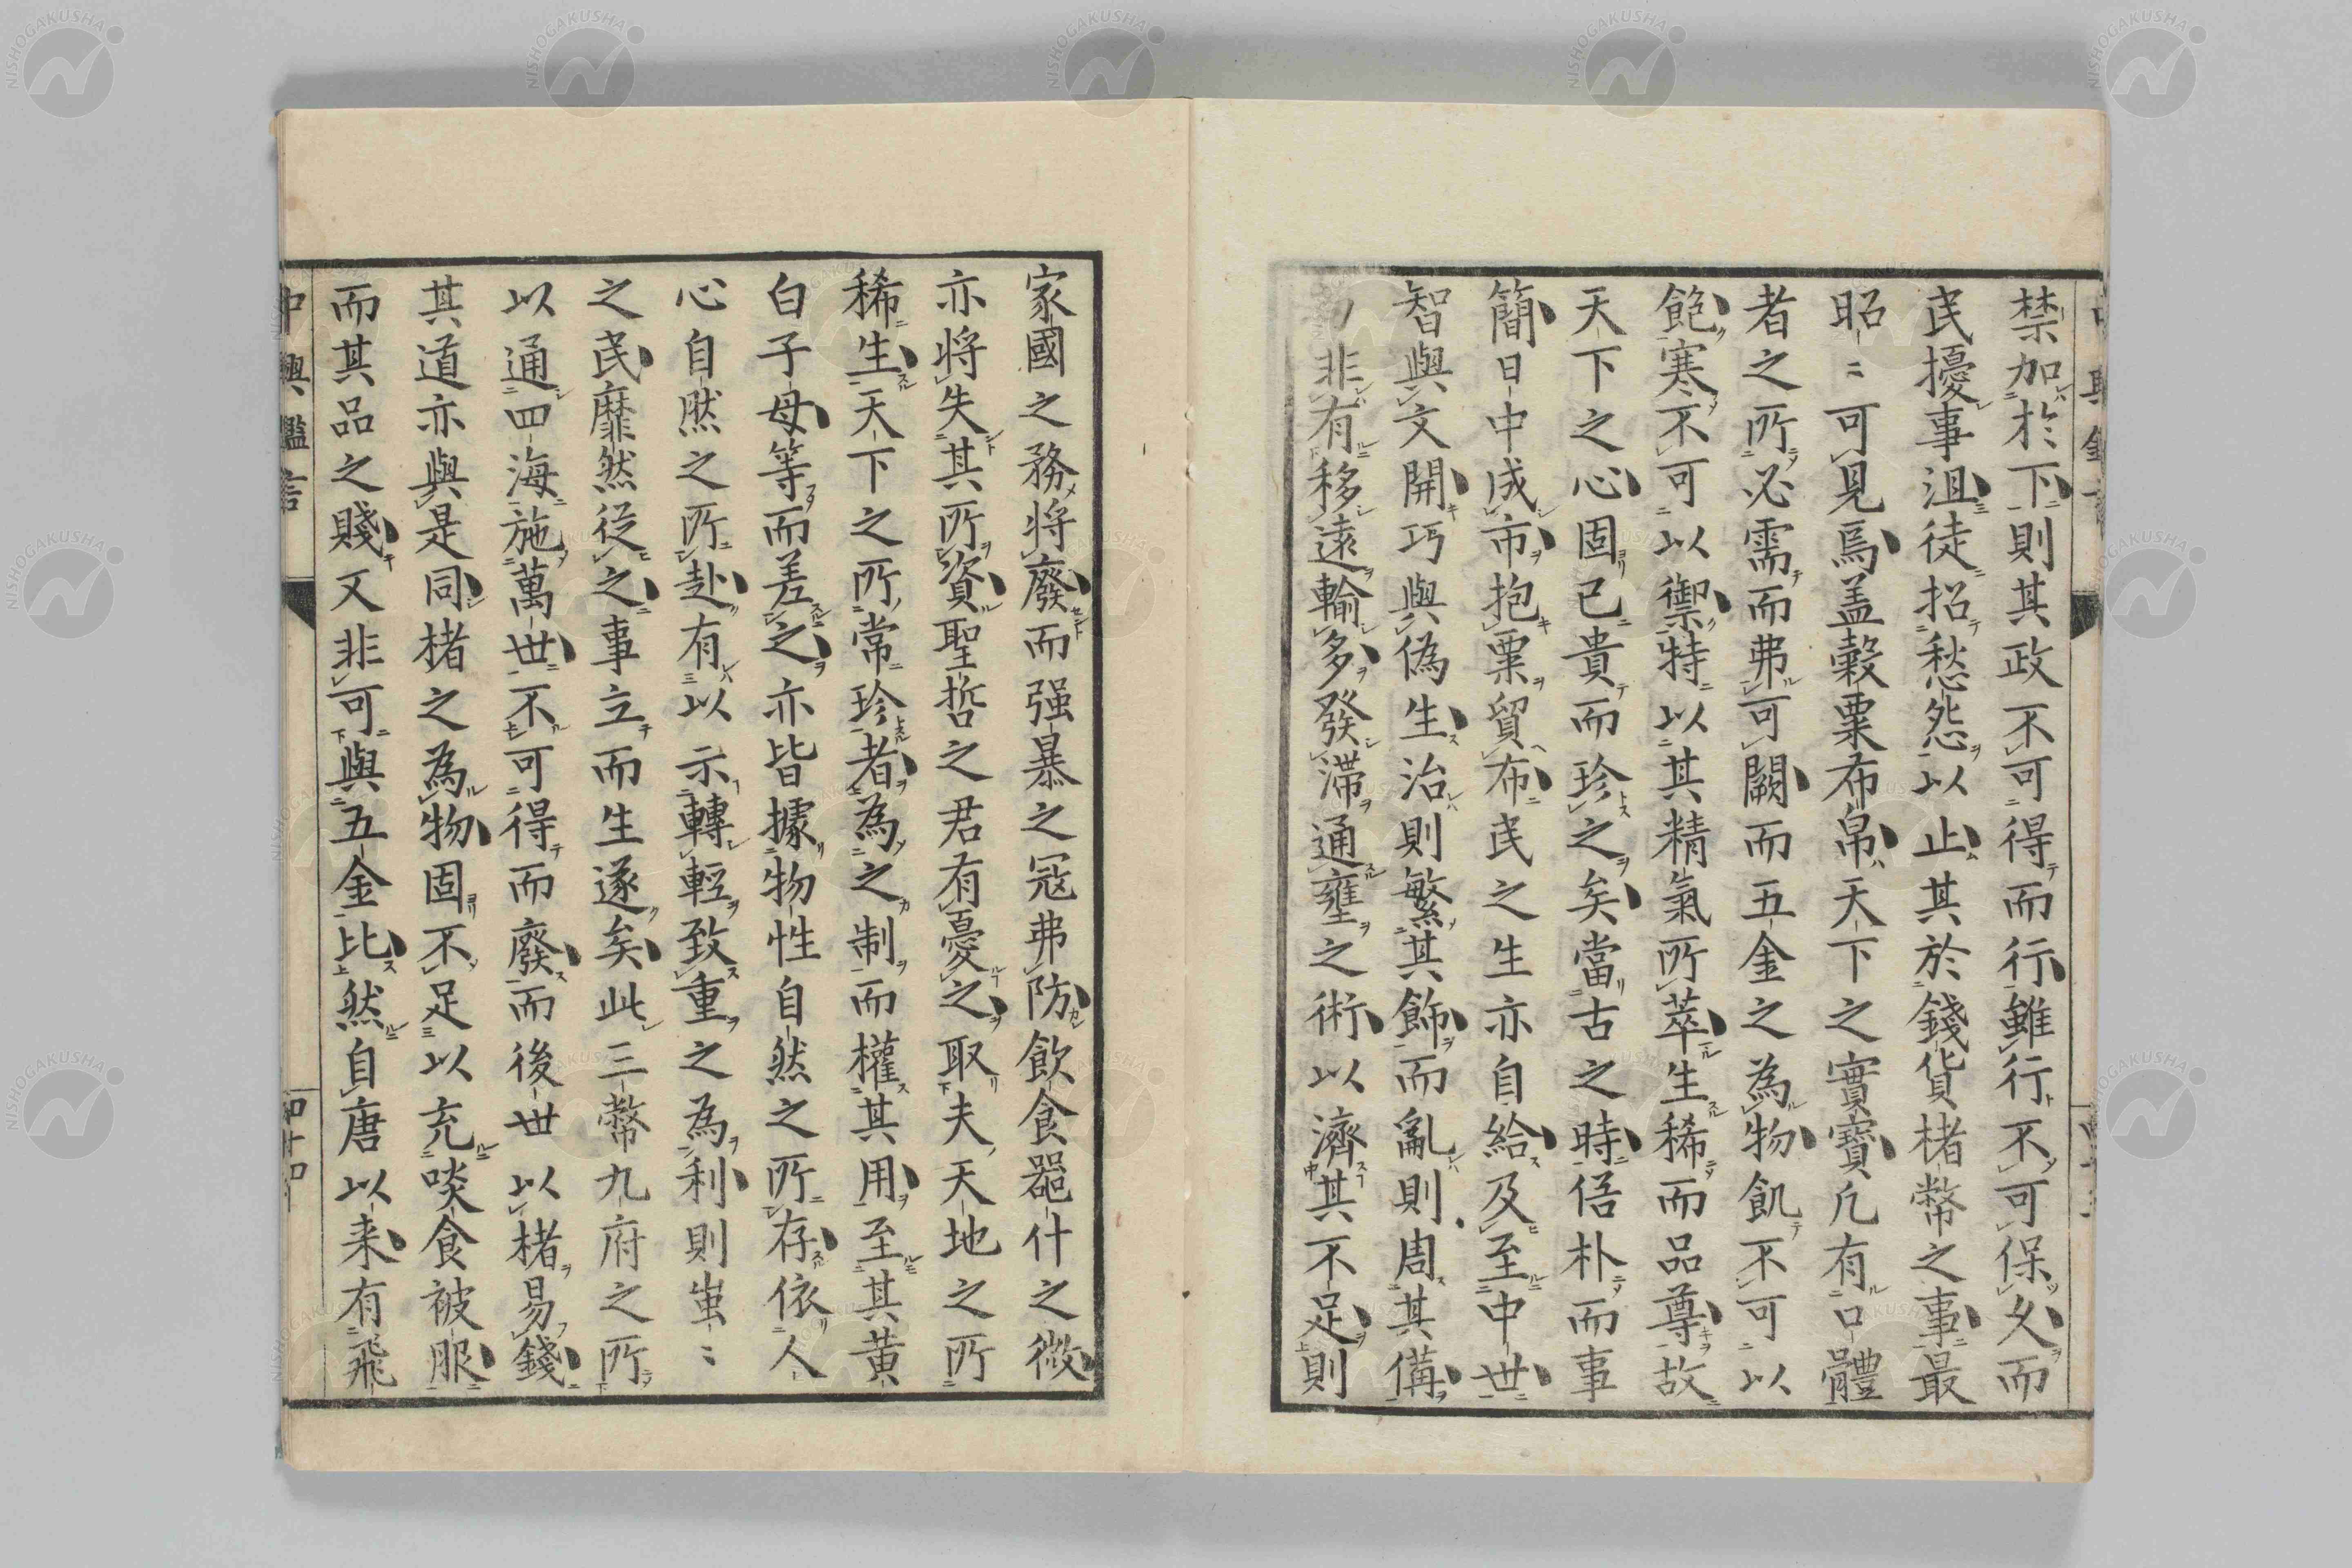 禁加於下則其政不可得而行雖行不可保久而
民擾事沮徒招愁怨以止其於錢貨楮幣之事最
昭〻可見焉盖糓粟布帛天下之實寶凡有口體
者之所必需而弗可闕而五金之為物飢不可以
飽寒不可以禦特以其精氣所萃生稀而品尊故
天下之心固已貴而珍之矣當古之時俉朴而事
簡日中成市抱粟貿布民之生亦自給及至中世
智與文開巧與偽生治則繁其飾而亂則周其備
非有移遠輸多發滞通壅之術以濟其不足則
家國之務將廢而强暴之冦弗防飲食噐什之微
亦將失其所資聖哲之君有憂之取夫天地之所
稀生天下之所常珍者為之制而權其用至其黄
白子母等而差之亦皆據物性自然之所存依人
心自然之所赴有以示轉輕致重之為利則蚩〻
之民靡然従之事立而生遂矣此三幣九府之所
以通四海施萬世不可得而廢而後世以楮易錢
其道亦與是同楮之為物固不足以充啖食被服
而其品之賤又非可與五金比然自唐以来有飛
中興鑑言
四十四
NISHOGAKUSHA